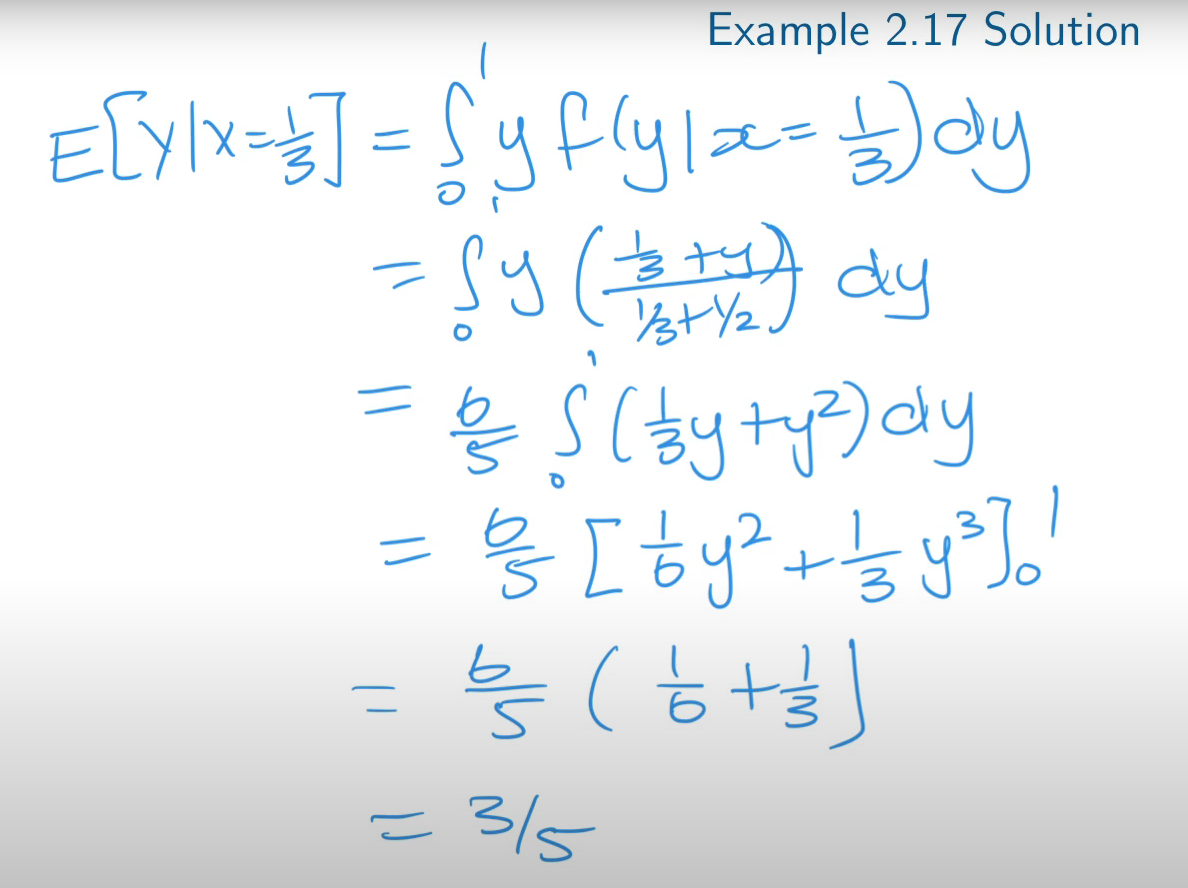 Example 2.17 Solution
E[Y|X=1/3] = ∫₀¹ y f(y|x=1/3) dy
= ∫₀¹ y ((1/3 + y)/(1/3 + 1/2)) dy
= 6/5 ∫₀¹ (1/3 y + y²) dy
= 6/5 [1/6 y² + 1/3 y³]₀¹
= 6/5 (1/6 + 1/3]
= 3/5